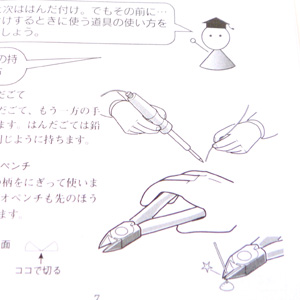 次ははんだ付け。でもその前に…
けするときに使う道具の使い方を
しょう。
の持
方
だごて
だごて、もう一方の手
ます。はんだごては鉛
同じように持ちます。
ペンチ
柄をにぎって使いま
オペンチも先のほう
ます。
面
ココで切る
7